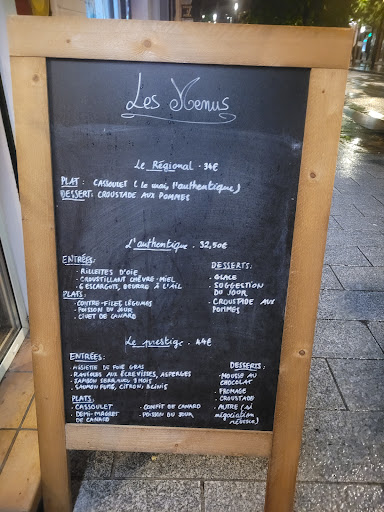 Les Menus
Le Régional . 34€
PLAT : CASSOULET ( le mai, l'authentique)
DESSERT: CROUSTADE AUX POMMES
L'authentique . 32,50€
ENTRÉES:
. RILLETTES D'OIE
. CROUSTILLANT CHÈVRE-MIEL
. 6 ESCARGOTS, BEURRE À L'AIL
PLATS:
. CONTRE-FILET, LÉGUMES
. POISSON DU JOUR
. CIVET DE CANARD
DESSERTS:
. GLACE
. SUGGESTION
DU JOUR
. CROUSTADE AUX
POMMES
Le prestige . 44€
ENTRÉES:
. ASSIETTE DE FOIE GRAS
. RAVIOLES AUX ÉCREVISSES, ASPERGES
. JAMBON SERRANO 9 MOIS
. SAUMON FUMÉ, CITRON, BLINIS
PLATS:
. CASSOULET
. DEMI-MAGRET
DE CANARD
. CONFIT DE CANARD
. POISSON DU JOUR
DESSERTS:
. MOUSSE AU
CHOCOLAT
. FROMAGE
. CROUSTADE
. AUTRE (si
négociation
réussie)